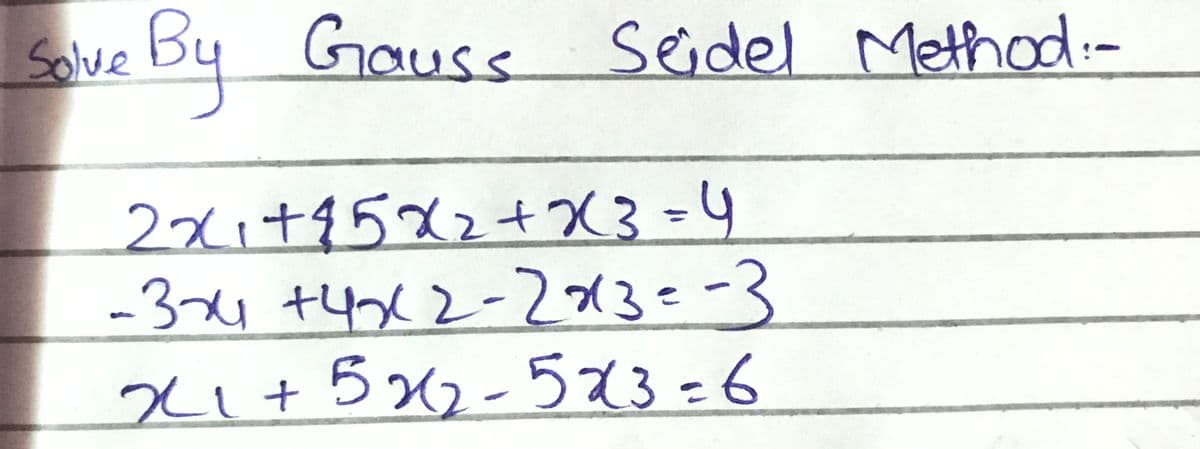 Solve By Gauss Seidel Method:-
2x₁+15x₂+x3=4
-3x₁+4x2-2x3=-3
x₁+5x₂-5x3=6